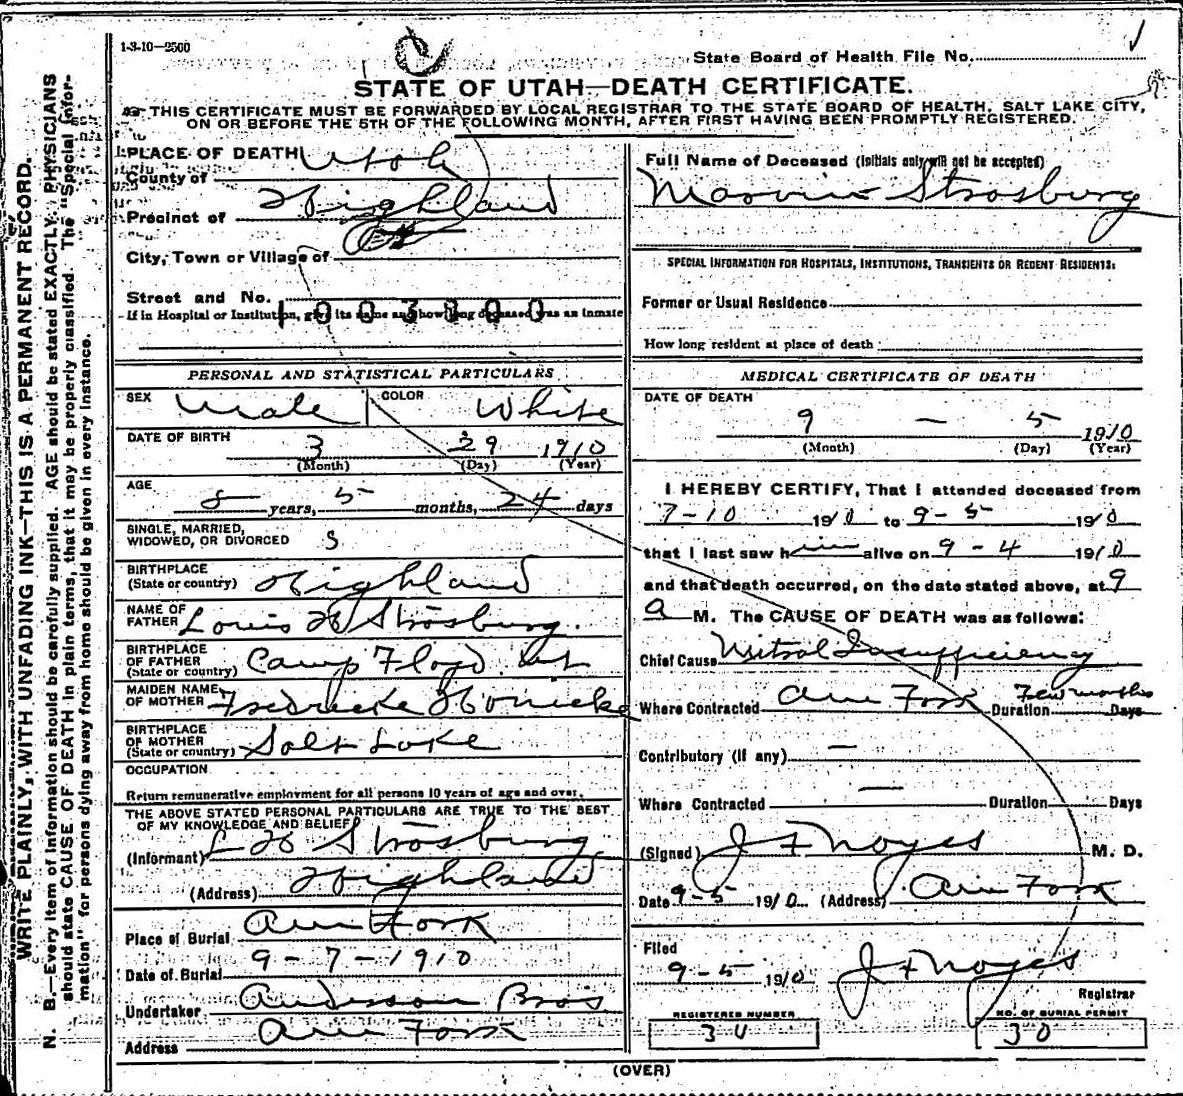 1-3-10—2500
State Board of Health File No.
STATE OF UTAH—DEATH CERTIFICATE.
THIS CERTIFICATE MUST BE FORWARDED BY LOCAL REGISTRAR TO THE STATE BOARD OF HEALTH, SALT LAKE CITY,
ON OR BEFORE THE 5TH OF THE FOLLOWING MONTH, AFTER FIRST HAVING BEEN PROMPTLY REGISTERED.
WRITE PLAINLY, WITH UNFADING INK—THIS IS A PERMANENT RECORD.
N. B.—Every item of information should be carefully supplied. AGE should be stated EXACTLY. PHYSICIANS
should state CAUSE OF DEATH in plain terms, that it may be properly classified. The "Special Infor-
mation" for persons dying away from home should be given in every instance.
PLACE OF DEATH
County of Utah
Precinct of Highland
City, Town or Village of
Street and No.
1003800
If in Hospital or Institution, give its name and how long deceased was an inmate
PERSONAL AND STATISTICAL PARTICULARS
SEX Male COLOR White
DATE OF BIRTH 3 29 1910
(Month) (Day) (Year)
AGE
years, 5 months, 24 days
SINGLE, MARRIED,
WIDOWED, OR DIVORCED S
BIRTHPLACE
(State or country) Highland
NAME OF
FATHER Louis H Strasburg.
BIRTHPLACE
OF FATHER
(State or country) Camp Floyd Ut
MAIDEN NAME
OF MOTHER Fredricke Honicke
BIRTHPLACE
OF MOTHER
(State or country) Salt Lake
OCCUPATION
Return remunerative employment for all persons 10 years of age and over.
THE ABOVE STATED PERSONAL PARTICULARS ARE TRUE TO THE BEST
OF MY KNOWLEDGE AND BELIEF
(Informant) L H Strasburg
(Address) Highland
Place of Burial Am Fork
Date of Burial 9-7-1910
Undertaker Anderson Bros
Address Am Fork
Full Name of Deceased (Initials only will not be accepted)
Marvin Strasburg
SPECIAL INFORMATION FOR HOSPITALS, INSTITUTIONS, TRANSIENTS OR RECENT RESIDENTS:
Former or Usual Residence
How long resident at place of death
MEDICAL CERTIFICATE OF DEATH
DATE OF DEATH
9 — 5 1910
(Month) (Day) (Year)
I HEREBY CERTIFY, That I attended deceased from
7-10 1910 to 9-5 1910
that I last saw him alive on 9-4 1910
and that death occurred, on the date stated above, at 9
a M. The CAUSE OF DEATH was as follows:
Chief Cause Mitral Insufficiency
Where Contracted Am Fork Duration Few months Days
Contributory (if any) —
Where Contracted — Duration Days
(Signed) J F Noyes M. D.
Date 9-5 1910 (Address) Am Fork
Filed
9-5 1910 J F Noyes
Registrar
REGISTERED NUMBER
30
NO. OF BURIAL PERMIT
30
(OVER)